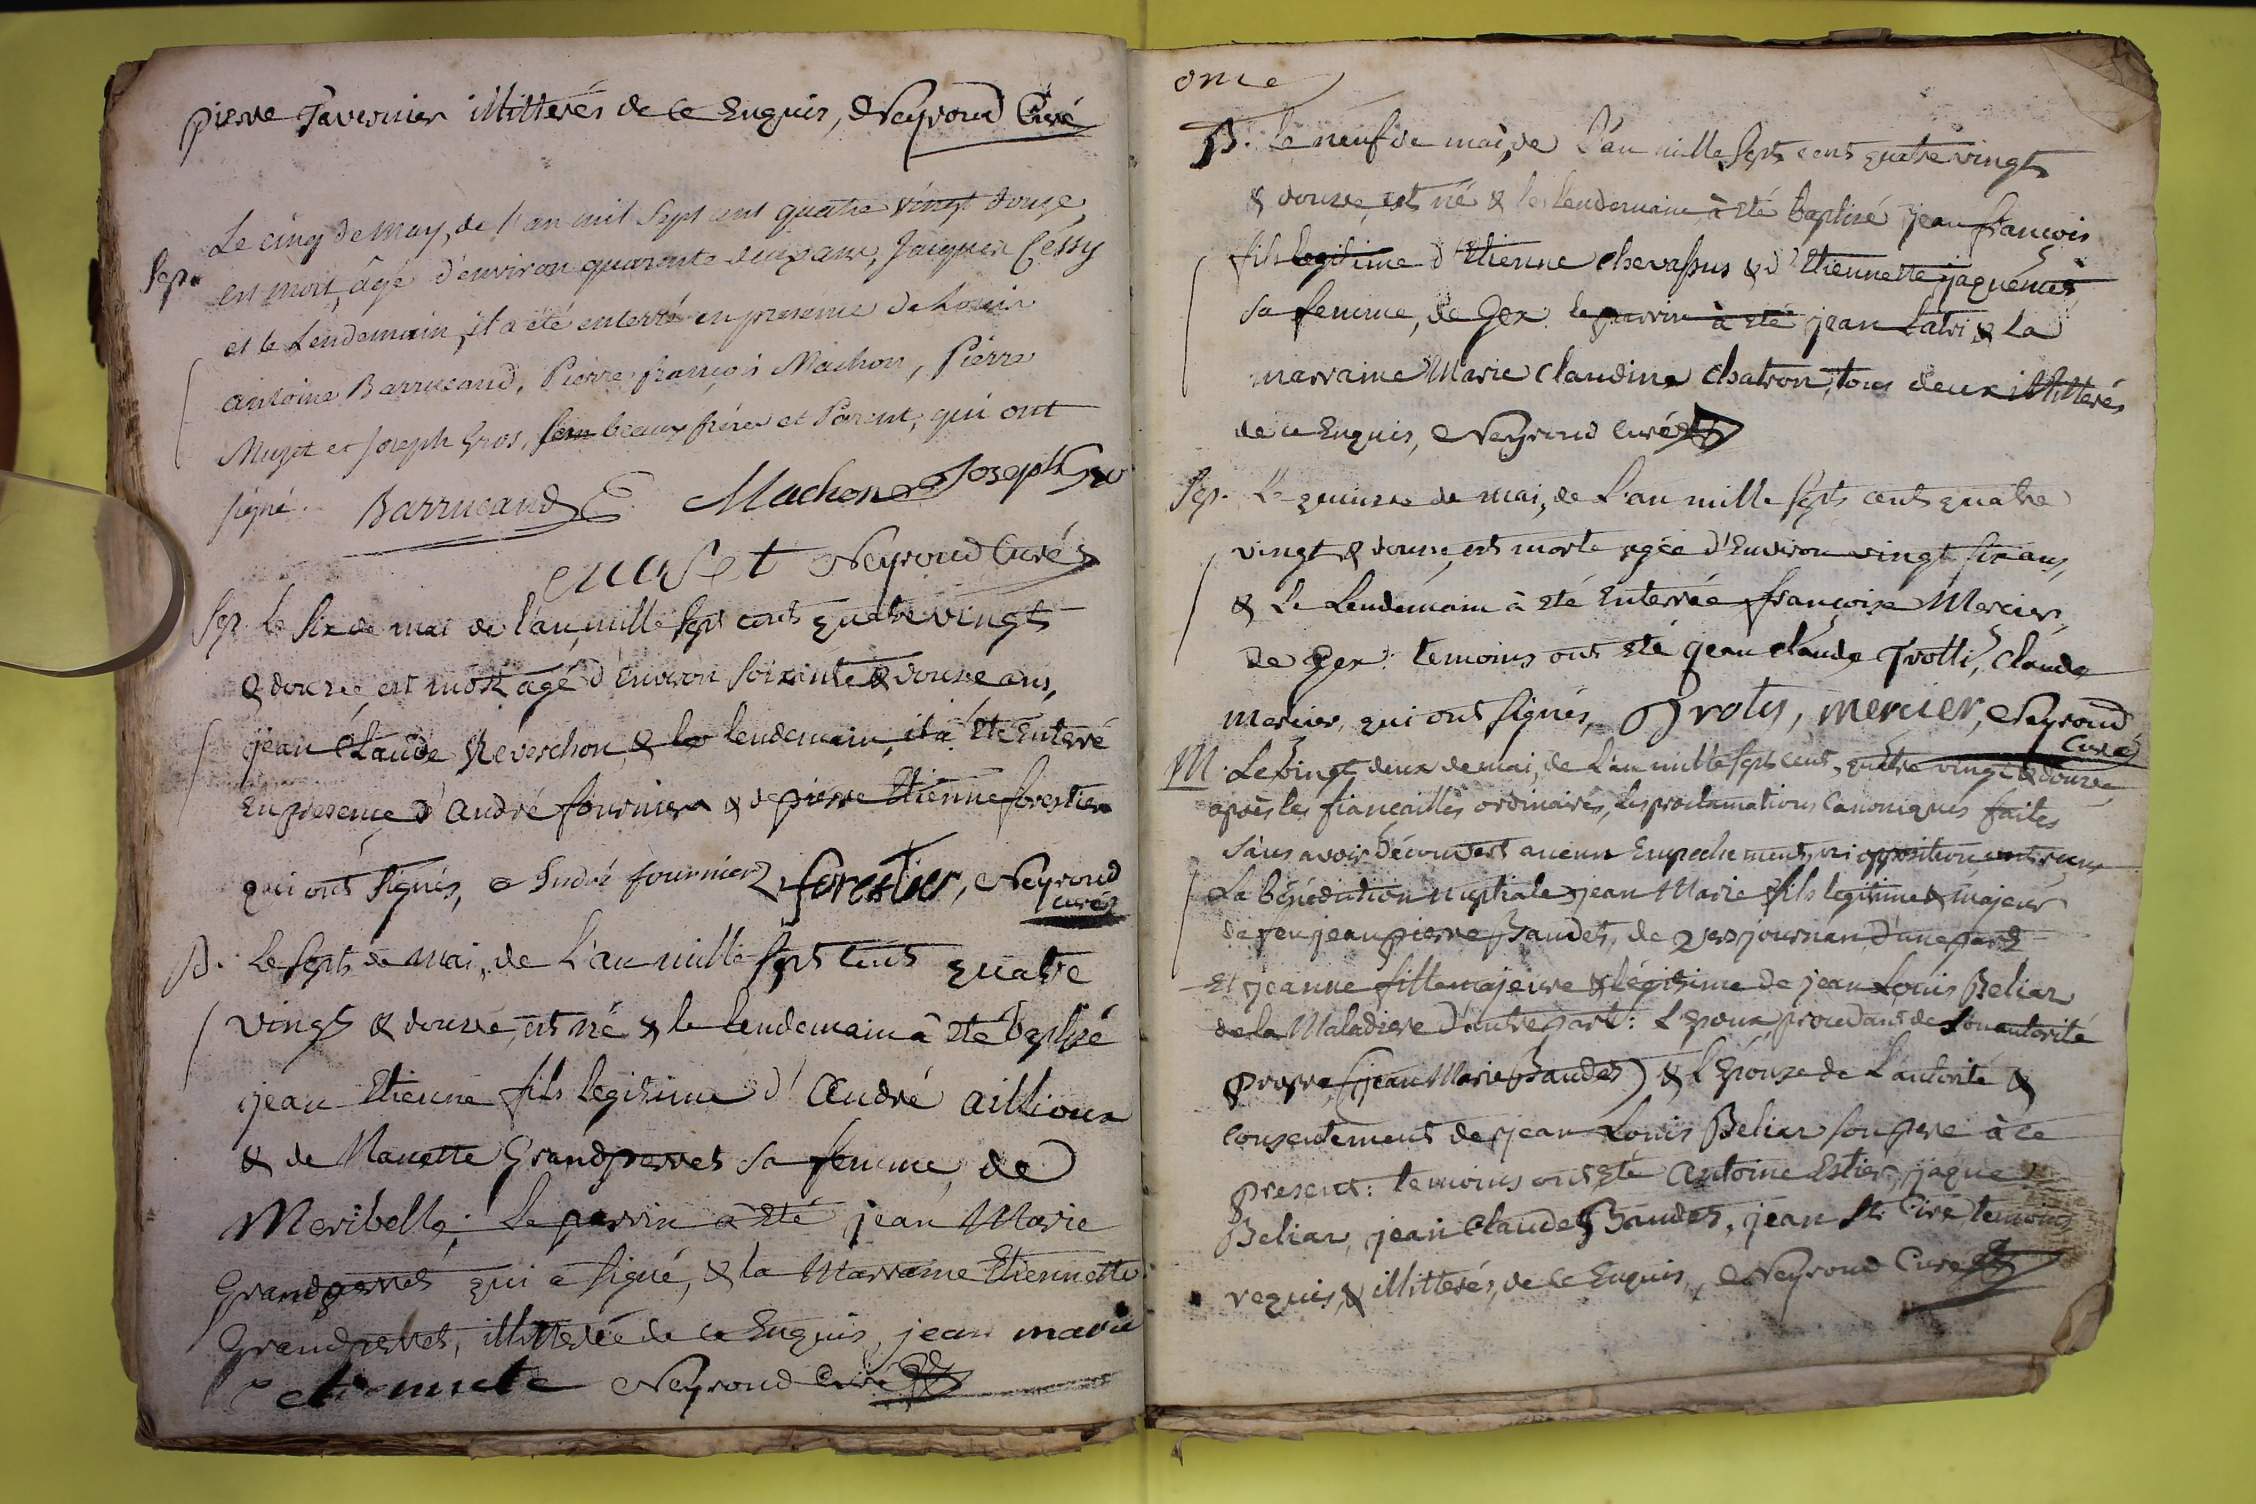 pierre Tavernier illitterés de ce Enquis, Neyroud Curé
Le cinq de may, de l'an mil sept cent quatre vingt douze,
Sep. est mort, âgé d'environ quarante deux ans, Jacques Cessy
et le Lendemain, il a été enterré en presence de Louis
antoine Barrucand, Pierre françois Machon, Pierre
Muzet et Joseph Gros, ses beaux freres et Parent, qui ont
signé. Barrucand Machon Joseph Gro
muset Neyroud Curé
Sep. Le Six de mai de l'an mille Sept cents quatre vingts
& douze, est mort agé d'Environ Soixante & douze ans,
jean Claude Reverchon, & le lendemain, il a Eté Enterré
En presence d'André fournier & de pierre Etienne forestier
qui ont Signés, André fournier, forestier, Neyroud
curé
B. Le Septs de mai, de L'an mille Sept cents quatre
vingts & douze, est né & le lendemain à eté baptisé
jean Etienne fils legitime d'André aillioux
& de Nanette Grandperret sa femme, de
Meribelle. Le parrin a eté jean Marie
Grandperret qui a Signé, & la Marraine Etiennette
Grandperret, illitterée de ce Enquis, jean marie
Neyroud Curé
onze
B. Le neuf de mai, de L'an mille Septs cents quatre vingts
& douze, est né & le lendemain à eté baptisé jean françois
fils legitime d'Etienne chevassus & d'Etiennette jaquemet
sa femme, de Gex. le parrin à eté jean Latri & La
marraine Marie Claudine Chatron, tous deux illitterés
de ce Enquis, Neyroud Curé
Sep. Le quinze de mai, de L'an mille Septs cents quatre
vingt & douze, est morte agée d'Environ vingt six ans,
& Le Lendemain à eté Enterrée françoise Mercier,
de Gex. temoins ont eté jean claude Trotti, Claude
mercier, qui ont Signés, Proty, mercier, Neyroud
Curé
M. Le vingt deux de mai, de L'an mille Septs cents, quatre vingt & douze,
après les fiançailles ordinaires, Les proclamations Canoniques faites
sans avoir decouvert aucun Empechement, ni opposition, ont reçus
La benediction nuptiale jean Marie fils legitime & majeur
de feu jean pierre Baudet, de Versjournan d'une part
Et jeanne fille majeure & legitime de jean Louis Beliar
de la Maladiere d'autre part: L'Epoux procedant de Son autorité
propre, (jean Marie Baudet) & L'Epouse de L'autorité &
consentement de jean Louis Beliar son pere à ce
present: temoins ont eté Antoine Estier, jaque
Beliar, jean Claude Baudet, jean St. Cire, temoins
requis, & illitterés, de ce Enquis, Neyroud Curé